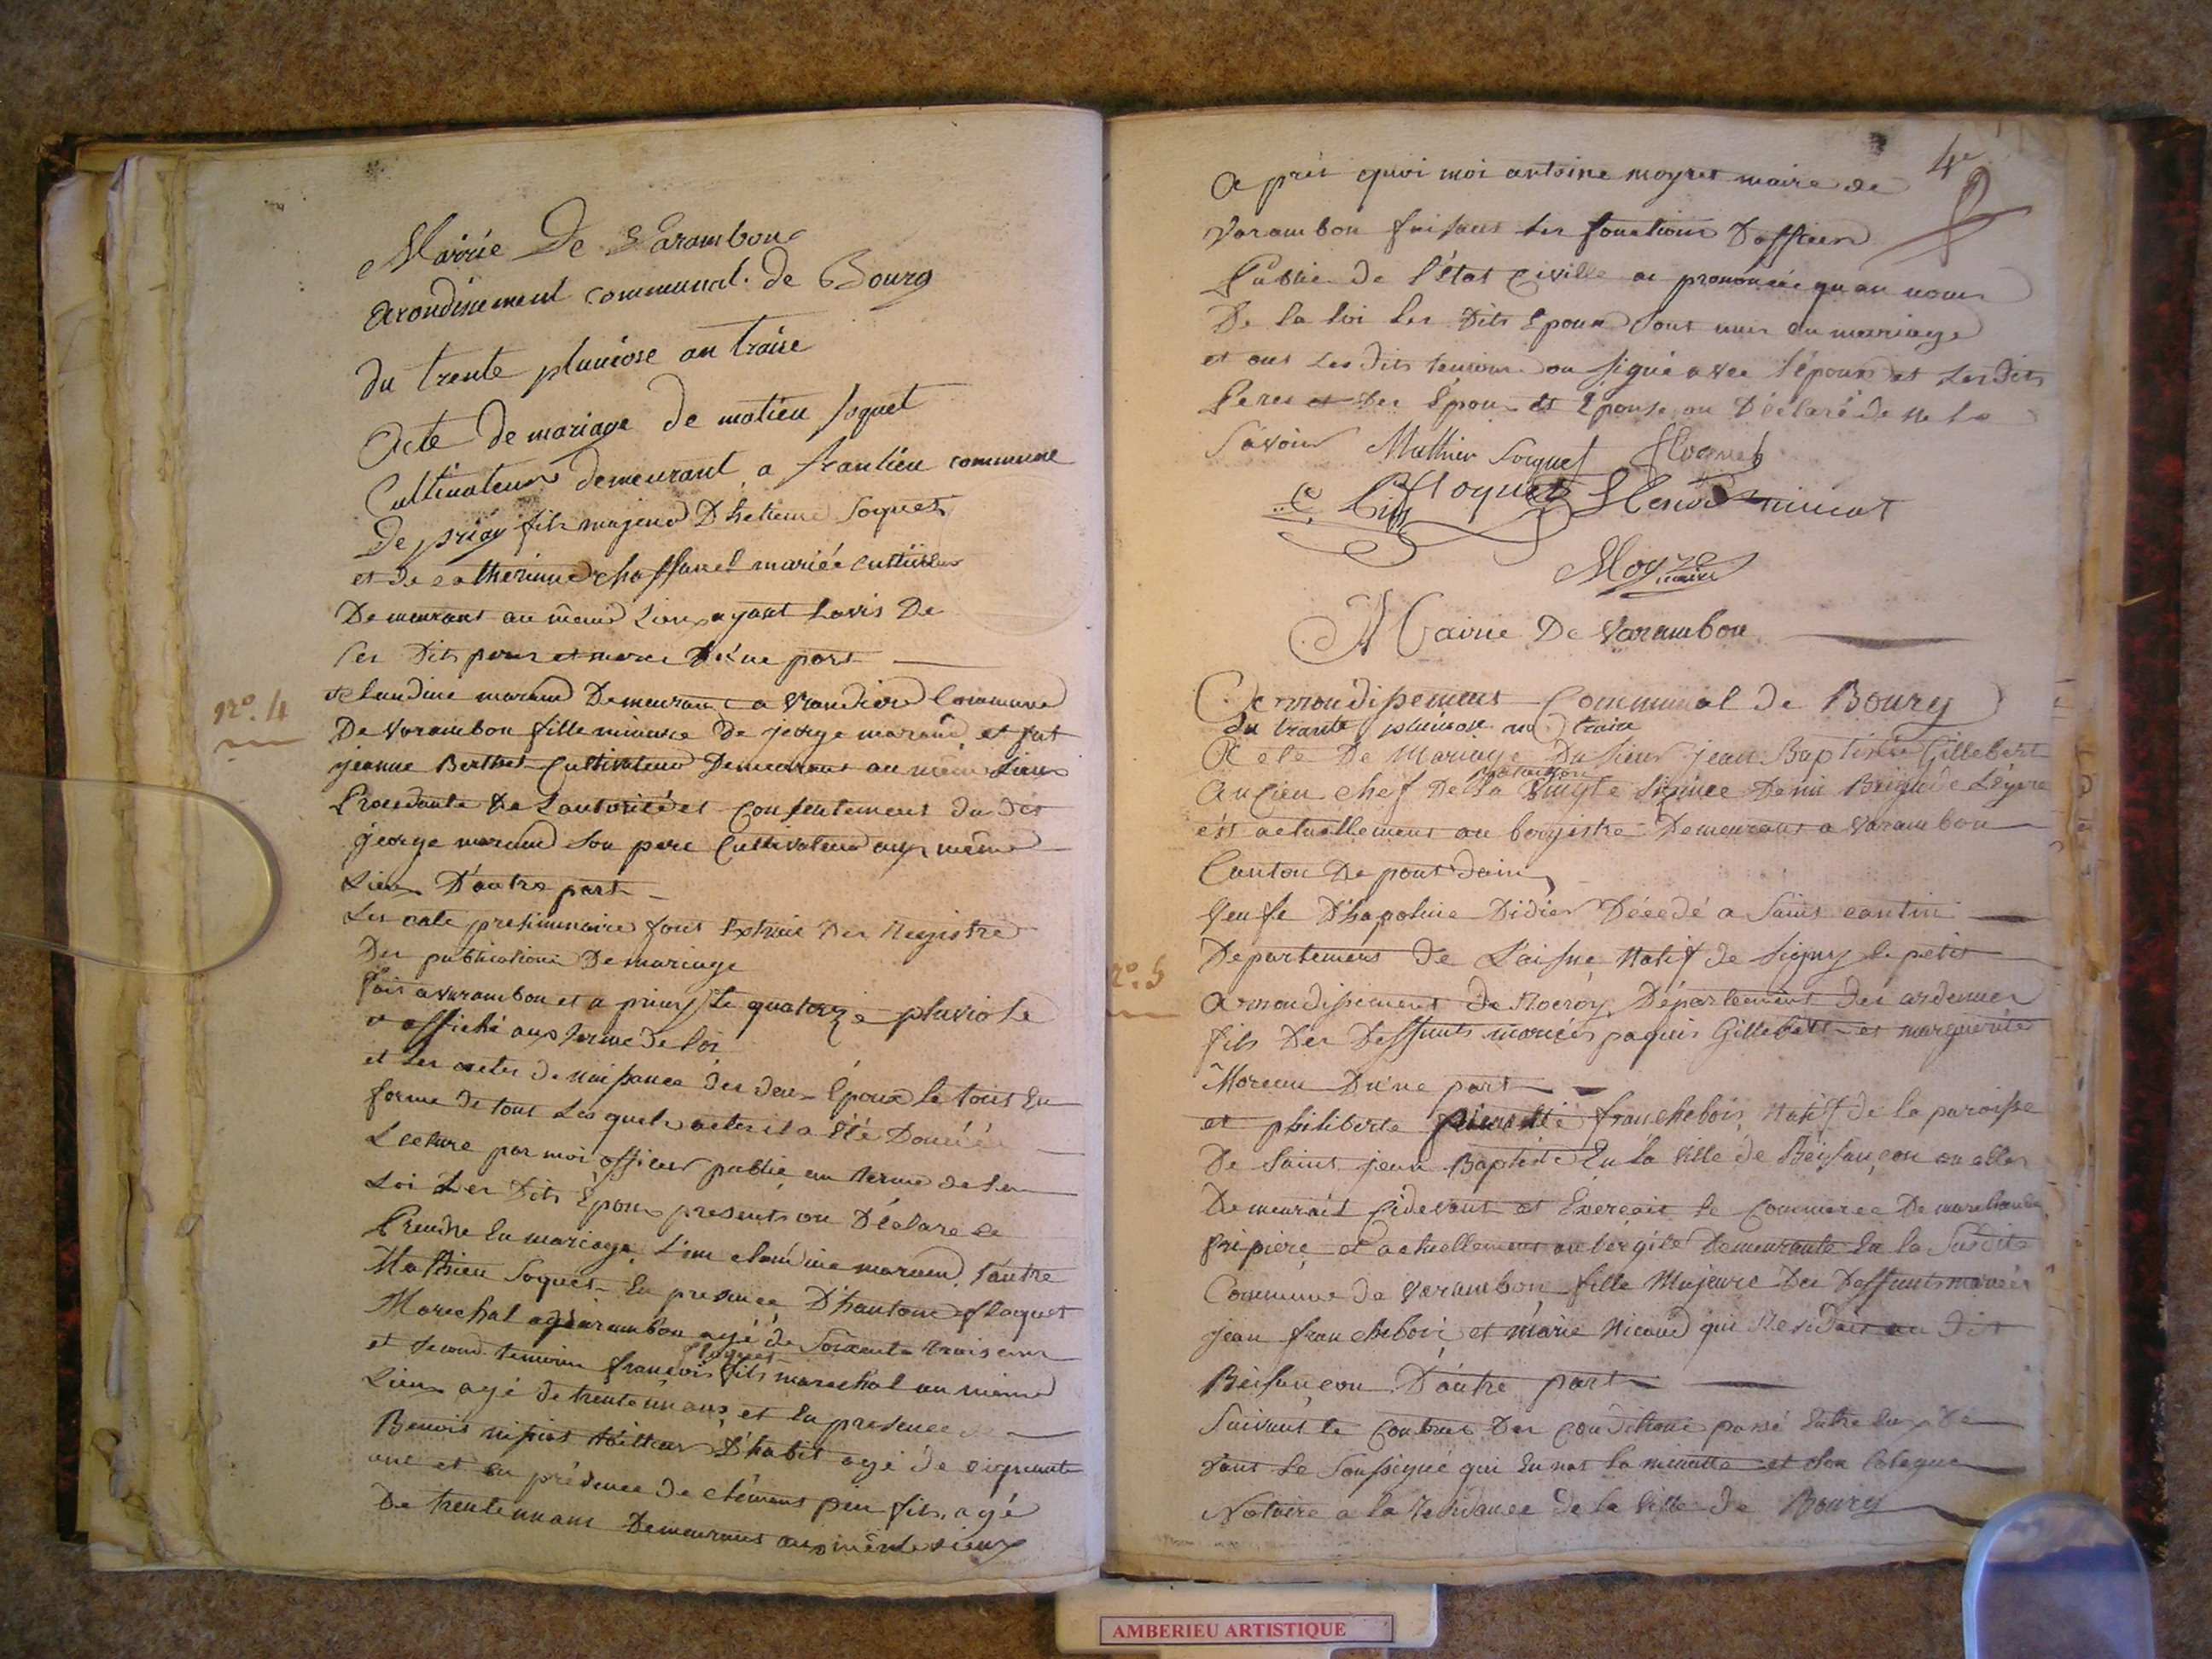 Mairie De Varambon
arondissement communal de Bourg
du trente pluviose an traise
Acte de mariage de matieu soquet
Cultivateur demeurant a franlieu commune
De priay fils majeur D'hetienne Soquet
et de catherinne chaffanel mariée cultivateur
Demeurant au même Lieu ayant Lavis De
ses Dits peres et mere D'une part
et Claudine maraud Demeurant a Commune
De Varambon fille mineure de jeorge maraud et fut
jeanne Berthet Cultivateur Demeurant au même Lieux
n.o 4
Procedante De Lautorité et Consentement du dit
jeorge maraud son pere Cultivateur aux même
Lieux D'autre part
Les acte preliminaire sont Extrait Des Registre
Des publications De mariage
fait a varambon et a priay Le quatorze pluviose
et affiché aux terme de loi
et Les actes de naissance des deux Epoux Le tout En
forme de tous Lesquels actes il a Eté Donnée
Lecture par moi officier public au terme de la
Loi Les Dits Epoux presents on Déclare se
Prendre En mariage L'un claudine maraud, l'autre
Mathieu Soquet En presence D'hantoine floquet
Marechal a varambon agé de Soixante trois ans
et second temoin francois floquet fils marechal au même
Lieux agé de trente un ans et En presence
Benoit tailleur D'habit agé de ciquante
ans et en présence de clément pin fils, agé
De trente un ans Demeurant aux même Lieux
4e
Après quoi moi antoine moyret maire de
Varambon faisant les fonctions D'officier
Public de l'état Civille ai prononcée quau nom
De la loi Les Dits Epoux sont unis en mariage
et ons Les dits temoins on signé avec l'époux et Les dits
Peres et Des Epoux et Epouse on Déclaré de ne le
Savoir Mathieu Soquet floquet
C Pin floquet
Moyret maire
Mairie De Varambon
Arrondissement Communal de Bourg
du trante pluviose an traise
Acte De Mariage Du Sieur jean Baptiste Gillebert
Ancien chef De Bataillon la Vingte Sizième Demi Brigade Légere
est actuellement aubergistre Demeurant a Varambon
Canton De pont dain
Veufe D'hapoline Didier Décedé a Saint cantin
Departement de Laisne Natif de Signy le petit
n.o 5
Arrondissement de Rocroy Département des ardennes
fils Des Deffunts mariés paquis Gillebert et marguerite
Moreau D'une part
et philiberte pierrette franchebois Natif de la paroisse
De Saint jean Baptiste En la Ville de Beisançon ou elle
Demeurait Cidevant et Exercait le Commerce De marchande
fripiere et actuellement aubergite Demeurante En la Susdite
Commune de Varambon fille Majeure Des Deffunts mariés
jean franchebois et marie Nicaud qui Residait au dit
Beisançon D'autre part
Suivant le Contrat Des Conditions passé Entre Eux De
vant Le Soussigné qui En nat la minutte et Son Colegue
Notaire a la Residance de la Ville de Bourg
AMBERIEU ARTISTIQUE